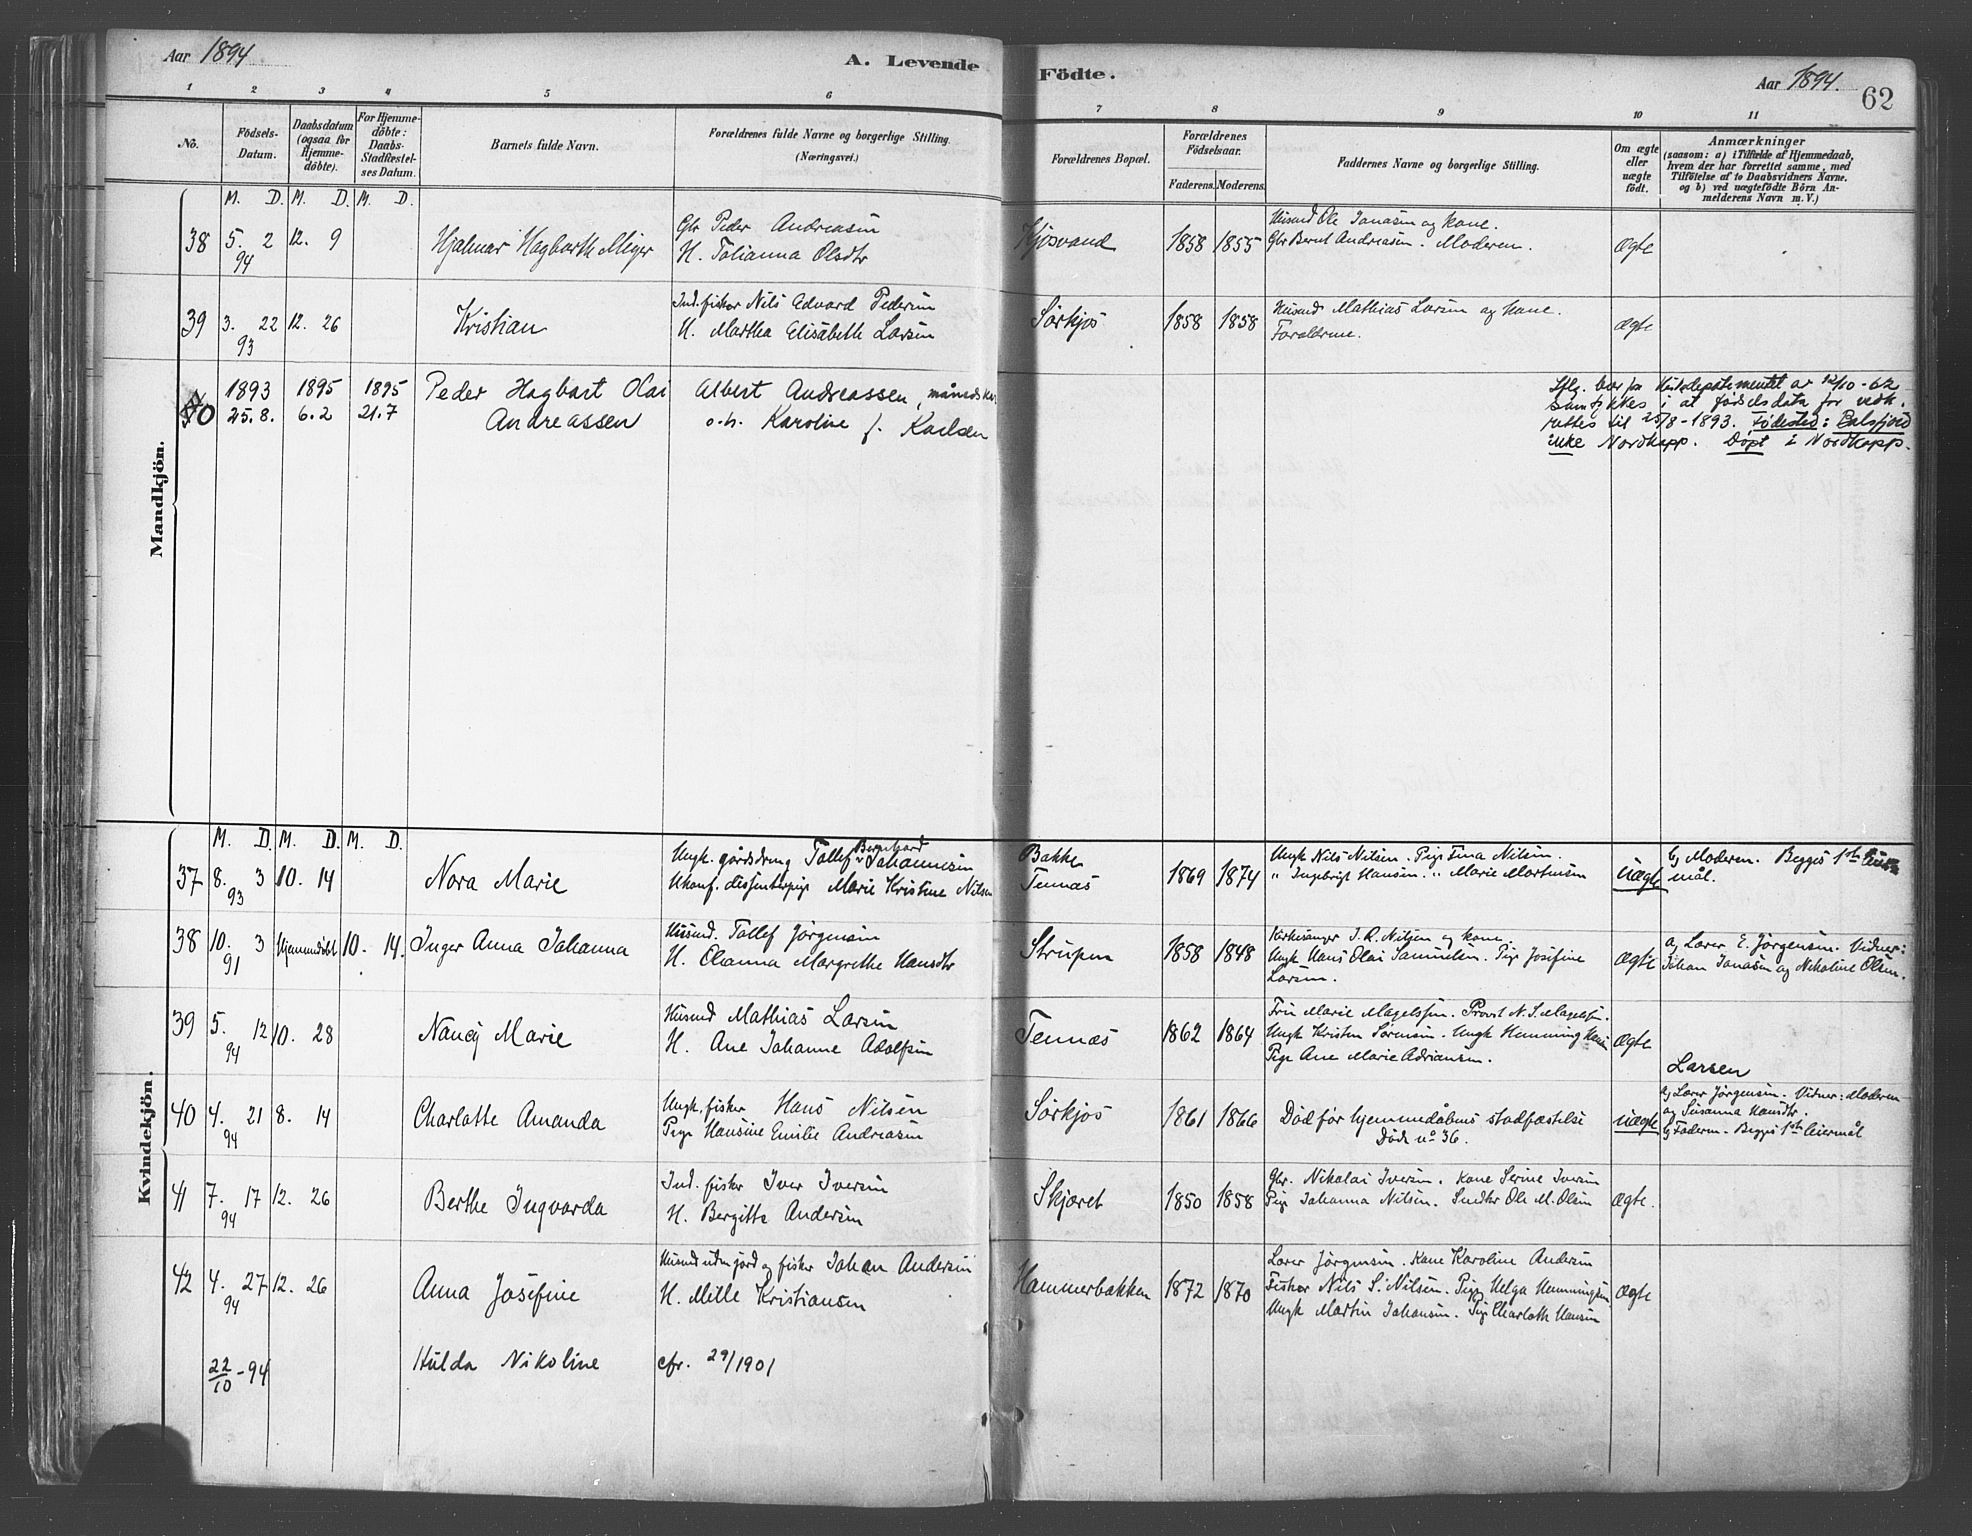 Aar 1894
A. Levende Födte.
Aar 1894.
62
1 2 3 4 5 6 7 8 9 10 11
No.
Födsels-
Datum.
Daabsdatum
(ogsaa for
Hjemme-
döbte).
For Hjemme-
döbte:
Daabs-
Stadfæstel-
ses Datum.
Barnets fulde Navn.
Forældrenes fulde Navne og borgerlige Stilling.
(Næringsvei.)
Forældrenes Bopæl.
Forældrenes
Födselsaar.
Faderens. Moderens.
Faddernes Navne og borgerlige Stilling.
Om ægte
eller
uægte
födt.
Anmærkninger
(saasom: a) i Tilfælde af Hjemmedaab,
hvem der har forrettet samme, med
Tilföielse af to Daabsvidners Navne.
og b) ved uægtefödte Börn An-
melderens Navn m. V.)
Mandkjön.
M. D. M. D. M. D.
38 5. 2 94 12. 9 Hjalmar Hagbarth Meier
Gbr Peder Andreasen
H. Tolianna Olsdtr
Kjosvand 1858 1855
Husmd Ole Jonasen og Kone.
Gbr Bernt Andreasen. Moderen.
ægte
39 3. 22 93 12. 26 Kristian
Ind. fisker Nils Edvard Pedersen
H. Martha Elisabeth Larsen
Sørkjos 1858 1858
Husmd Mathias Larsen og Kone.
Forældrene.
ægte
40 1893 25.8. 1895 6.2 1895 21.7
Peder Hagbart Olai
Andreassen
Albert Andreassen,
o.h. Karoline f. Karlsen
Iflg. brev fra Kirkedepartementet av 12/10-62
samtykkes i at fødselsdata for vedk.
rettes til 25/8-1893. Fødested: Balsfjord
ikke Nordkapp. Døpt i Nordkapp.
Kvindekjön.
M. D. M. D. M. D.
37 8. 3 93 10. 14 Nora Marie
Ungk. gårdsdreng Tollef Bernhard Johannesen
Ukonf. dissenterpige Marie Kristine Nilsen
Bakke
Tennæs 1869 1874
Ungk Nils Nilsen. Pige Tina Nilsen.
" Ingebrigt Hansen. " Marie Martinsen
uægte
b) Moderen. Begges 1ste leier-
mål.
38 10. 3 91 Hjemmedøbt 10. 14. Inger Anna Johanna
Husmd. Tollef Jørgensen
H. Olanna Margrethe Hansdtr
Strupen 1858 1848
Kirkesanger J. A. Nilsen og Kone.
Ungk Hans Olai Samuelsen. Pige Josefine
Larsen.
ægte
a) Lærer E. Jørgensen. Vidner:
Johan Jonasen og Nikoline Olsen.
39 5. 12 94 10. 28 Nancy Marie
Husmd Mathias Larsen
H. Ane Johanne Adolfsen
Tennæs 1862 1864
Fru Marie Magelssen. Provst N. S. Magelssen.
Ungk Kristen Sørensen. Ungk Hemming Hansen
Pige Ane Marie Adriansen.
ægte
Larsen
40 4. 21 94 8. 14 Charlotte Amanda
Ungk. fisker Hans Nilsen
Pige Hansine Emilie Andreasen
Sørkjos 1861 1866
Død før hjemmedåbens stadfæstelse
Døde no 36.
uægte
a) Lærer Jørgensen. Vidner: Moderen
og Susanna Hansdtr.
b) Faderen. Begges 1ste leiermål
41 7. 17 94 12. 26 Berthe Ingvarda
Ind. fisker Iver Iversen
H. Bergitte Andersen
Skjæret 1850 1858
Gbr. Nikolai Iversen. Kone Serine Iversen
Pige Johanna Nilsen. Ole M. Olsen
ægte.
42 4. 27 94 12. 26 Anna Josefine
Husmd uden jord og fisker Johan Andersen
H. Mille Kristiansen
Hammerbakken 1872 1870
Lærer Jørgensen. Kone Karoline Andersen
Fisker Nils S. Nilsen. Pige Helga Hemmingsen
Ungk Martin Johansen. Pige Charlotte Hansen
ægte
22/10-94 Hulda Nikoline cfr. 29/1901